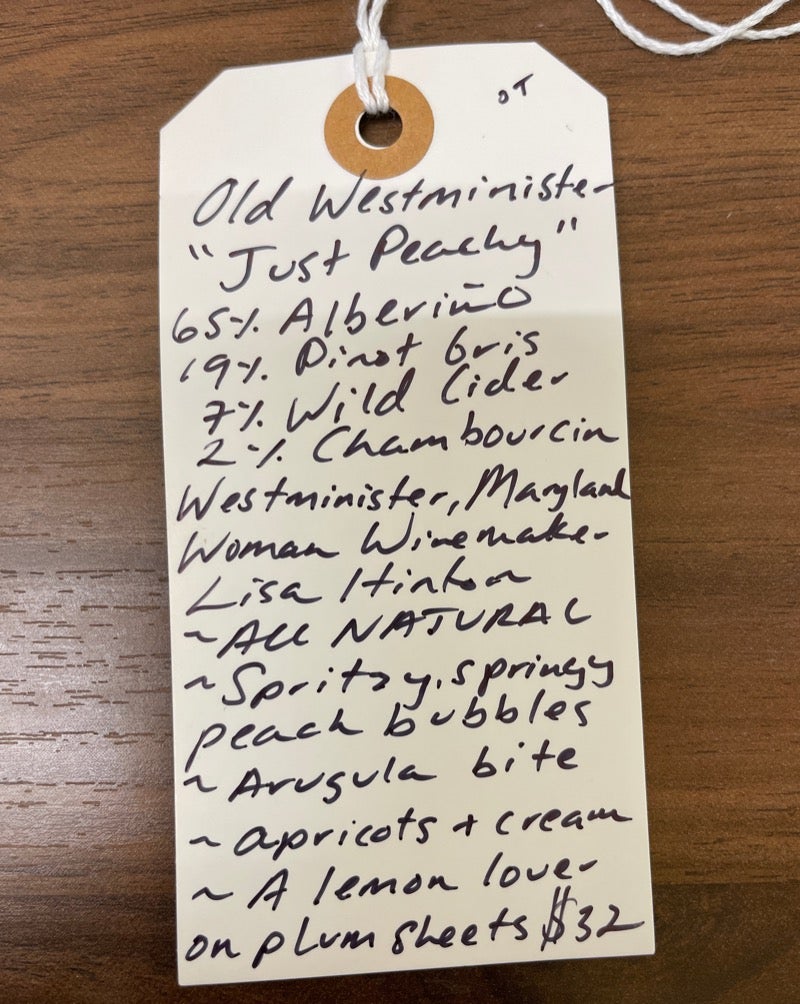 OT
Old Westminister
"Just Peachy"
65% Alberiño
19% Pinot Gris
7% Wild Cider
2% Chambourcin
Westminister, Maryland
Woman Winemaker
Lisa Hinton
~ALL NATURAL
~Spritzy, springy
peach bubbles
~Arugula bite
~apricots + cream
~A lemon lover
on plum sheets $32